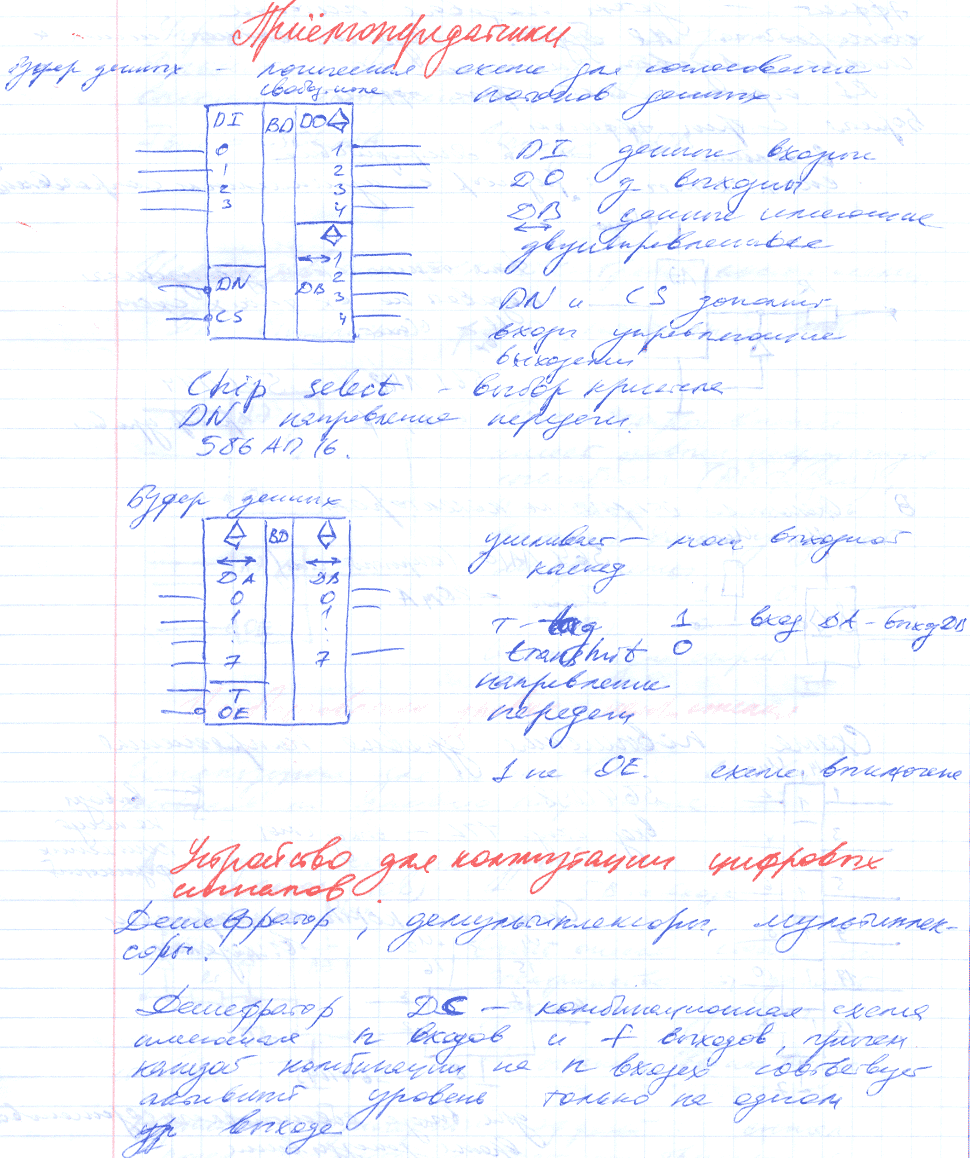 Приёмопередатчики
Буфер данных - логическая схема для согласования
потоков данных
DI BD DO
0 1
1 2
2 3
3 4
1
DN DB 2
3
CS 4
DI данные входы
DO д. выходны
DB данные имеющие
двунаправленные
DN и CS
входы управляющие
выходами
Chip select - выбор кристала
DN направление передачи.
586 АП 16.
Буфер данных
BD
DA DB
0 0
1 1
: :
7 7
T
OE
усиливает - мощ выходной
каскад
T - 1 вход DA - выход DB
transmit 0
направление
передачи
1 на OE. схема выключена
Устройство для коммутации цифровых
сигналов.
Дешефратор, демультиплексоры, мультиплек-
соры.
Дешефратор DC - комбинационная схема
имеющая n входов и f выходов, причем
каждой комбинации на n входах
активный уровень только на одном
выходе